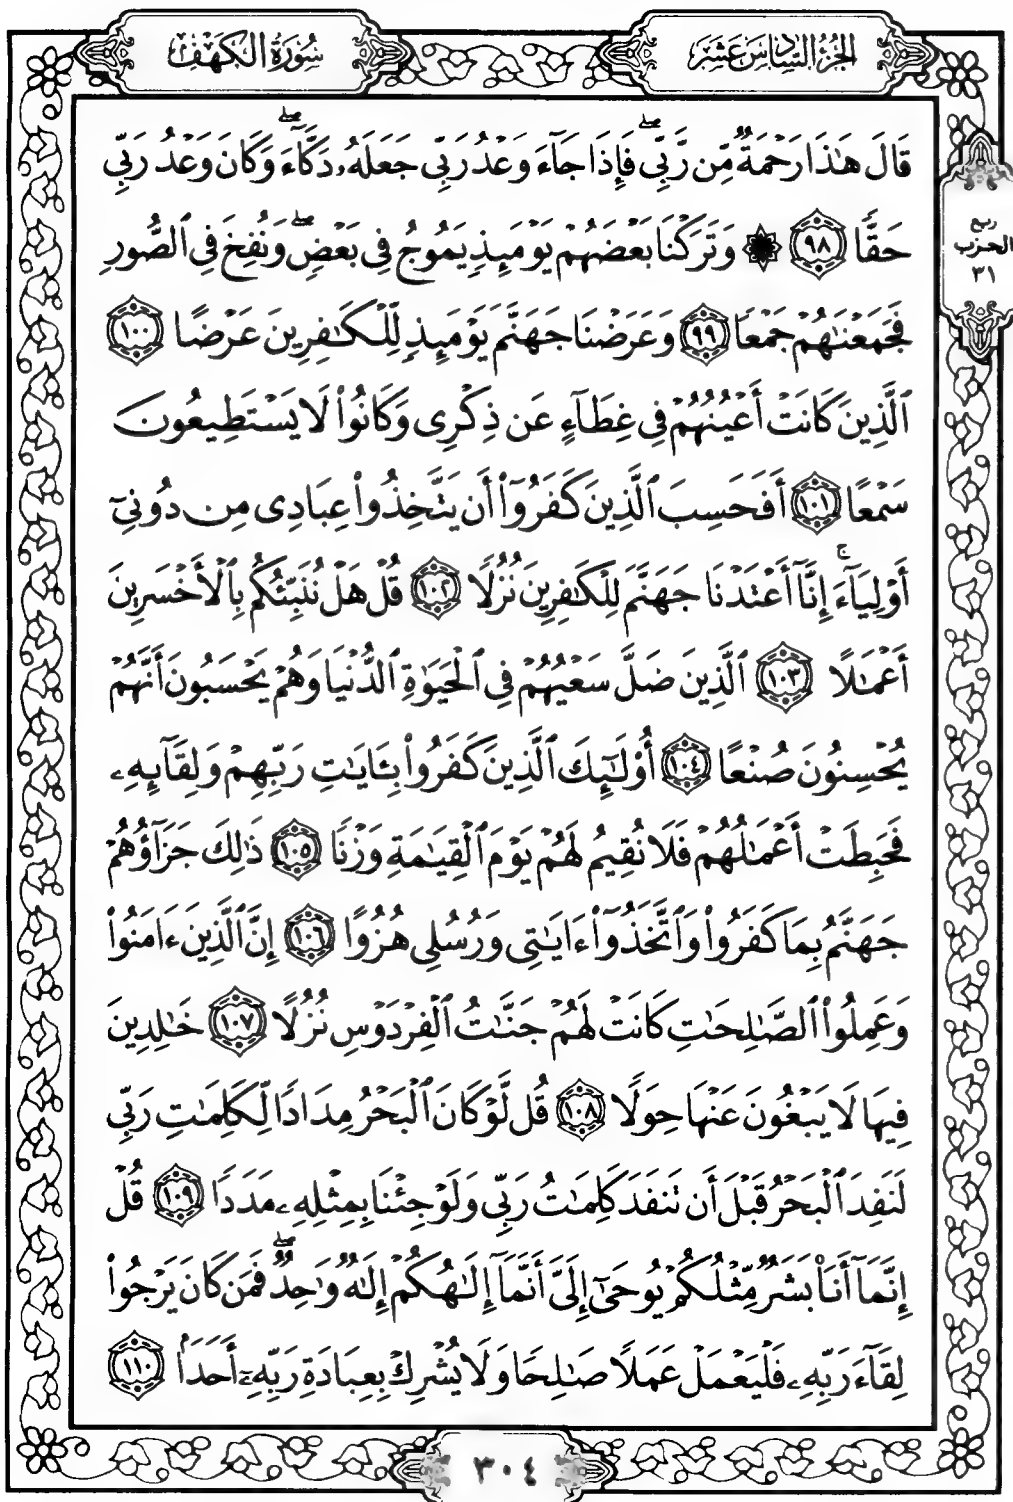 الجُزْءُ السَّادِسَ عَشَرَ
سُورَةُ الكَهْفِ
قَالَ هَٰذَا رَحْمَةٌ مِّن رَّبِّي ۖ فَإِذَا جَآءَ وَعْدُ رَبِّي جَعَلَهُۥ دَكَّآءَ ۖ وَكَانَ وَعْدُ رَبِّي
حَقًّا ٩٨ ۞ وَتَرَكْنَا بَعْضَهُمْ يَوْمَئِذٍ يَمُوجُ فِي بَعْضٍ ۖ وَنُفِخَ فِي ٱلصُّورِ
فَجَمَعْنَٰهُمْ جَمْعًا ٩٩ وَعَرَضْنَا جَهَنَّمَ يَوْمَئِذٍ لِّلْكَٰفِرِينَ عَرْضًا ١٠٠
ٱلَّذِينَ كَانَتْ أَعْيُنُهُمْ فِي غِطَآءٍ عَن ذِكْرِي وَكَانُوا۟ لَا يَسْتَطِيعُونَ
سَمْعًا ١٠١ أَفَحَسِبَ ٱلَّذِينَ كَفَرُوٓا۟ أَن يَتَّخِذُوا۟ عِبَادِي مِن دُونِيٓ
أَوْلِيَآءَ ۚ إِنَّآ أَعْتَدْنَا جَهَنَّمَ لِلْكَٰفِرِينَ نُزُلًا ١٠٢ قُلْ هَلْ نُنَبِّئُكُم بِٱلْأَخْسَرِينَ
أَعْمَٰلًا ١٠٣ ٱلَّذِينَ ضَلَّ سَعْيُهُمْ فِي ٱلْحَيَوٰةِ ٱلدُّنْيَا وَهُمْ يَحْسَبُونَ أَنَّهُمْ
يُحْسِنُونَ صُنْعًا ١٠٤ أُو۟لَٰٓئِكَ ٱلَّذِينَ كَفَرُوا۟ بِـَٔايَٰتِ رَبِّهِمْ وَلِقَآئِهِۦ
فَحَبِطَتْ أَعْمَٰلُهُمْ فَلَا نُقِيمُ لَهُمْ يَوْمَ ٱلْقِيَٰمَةِ وَزْنًا ١٠٥ ذَٰلِكَ جَزَآؤُهُمْ
جَهَنَّمُ بِمَا كَفَرُوا۟ وَٱتَّخَذُوٓا۟ ءَايَٰتِي وَرُسُلِي هُزُوًا ١٠٦ إِنَّ ٱلَّذِينَ ءَامَنُوا۟
وَعَمِلُوا۟ ٱلصَّٰلِحَٰتِ كَانَتْ لَهُمْ جَنَّٰتُ ٱلْفِرْدَوْسِ نُزُلًا ١٠٧ خَٰلِدِينَ
فِيهَا لَا يَبْغُونَ عَنْهَا حِوَلًا ١٠٨ قُل لَّوْ كَانَ ٱلْبَحْرُ مِدَادًا لِّكَلِمَٰتِ رَبِّي
لَنَفِدَ ٱلْبَحْرُ قَبْلَ أَن تَنفَدَ كَلِمَٰتُ رَبِّي وَلَوْ جِئْنَا بِمِثْلِهِۦ مَدَدًا ١٠٩ قُلْ
إِنَّمَآ أَنَا۠ بَشَرٌ مِّثْلُكُمْ يُوحَىٰٓ إِلَيَّ أَنَّمَآ إِلَٰهُكُمْ إِلَٰهٌ وَٰحِدٌ ۖ فَمَن كَانَ يَرْجُوا۟
لِقَآءَ رَبِّهِۦ فَلْيَعْمَلْ عَمَلًا صَٰلِحًا وَلَا يُشْرِكْ بِعِبَادَةِ رَبِّهِۦٓ أَحَدًا ١١٠
ربع
الحزب
٣١
٣٠٤